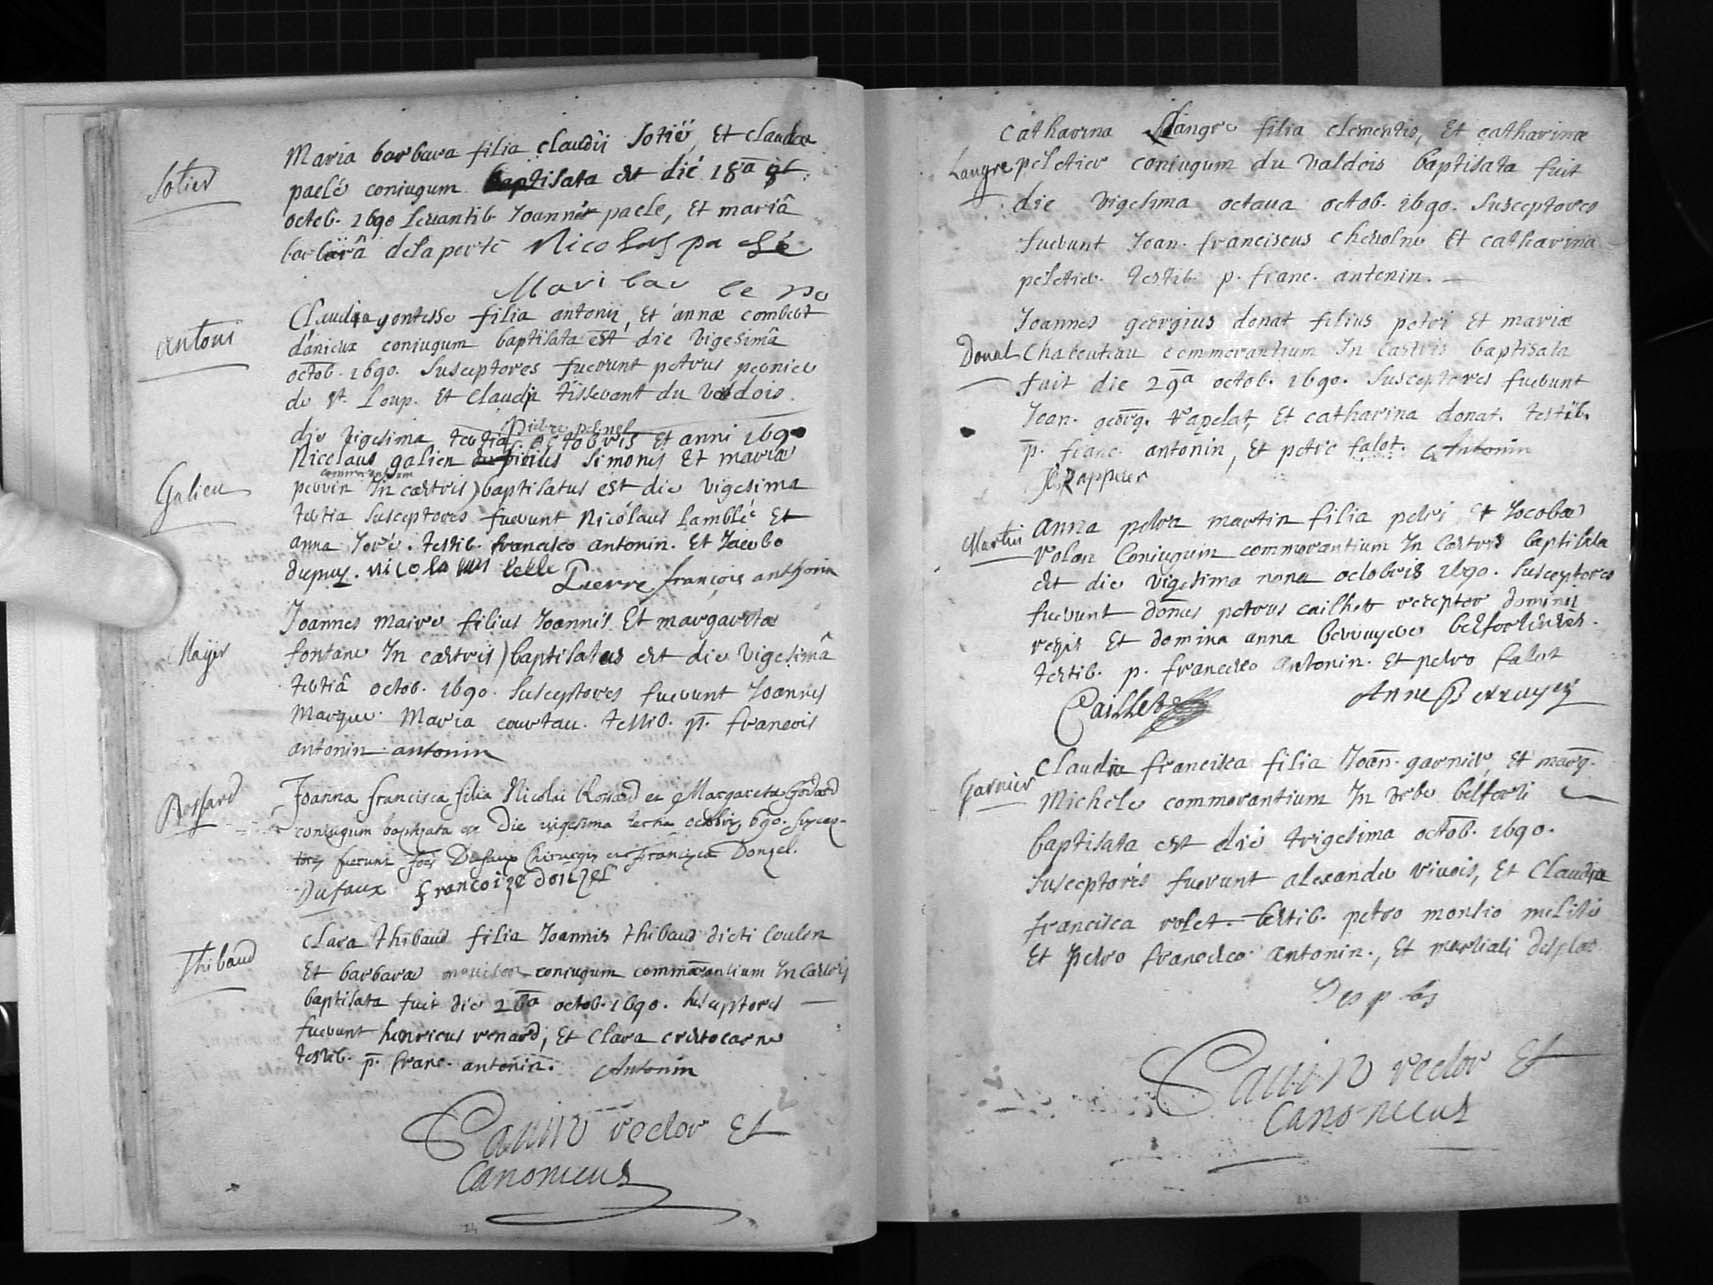 Sotier
Maria barbara filia claudii Sotié, Et claudæ
paelé coniugum baptisata est die 18ª
octob. 1690 Levantib Joanne paele, Et mariâ
barbarâ de la porte Nicolas paelé
Mari bar
antoni
Claudia gontesse filia antonii, Et annæ
coniugum baptisata est die vigesimâ
octob. 1690. Susceptores fuerunt petrus
de St. Loup. Et Claudia tisserant du valdois.
die vigesima tertia octobris Et anni 1690
Galien
Nicolaus galien filius Simonis Et mariæ
commorantium
perrin In castris) baptisatus est die vigesima
tertia Susceptores fuerunt Nicolaus Lamblé Et
anna Joré. testib. francisco antonin. Et Jacobo
dupuy. nicola
Pierre françois anthonin
Joannes maire filius Joannis Et margaritæ
fontane In castris) baptisatus est die vigesimâ
tertiâ octob. 1690. Susceptores fuerunt Joannes
Marque Maria courtau. testib. p. francois
antonin antonin
Rossard
Joanna francisca filia Nicolai Rossard et Margareta Godard
coniugum baptisata est Die vigesima tertia octobris 690. suscep-
tores fuerunt Joēs Dufaux Chirurgus et francisca Donzel.
Dufaux francoize donzel
Thibaud
Clara thibaud filia Joannis thibaud dicti Coulon
Et barbaræ coniugum commorantium In castris
baptisata fuit die 26ª octob. 1690. susceptores
fuerunt henricus renard, Et Clara
testib. p. franc. antonin. Antonin
rector Et
Canonicus
Catharina Langre filia clementis, Et catharinæ
Langre
peletier coniugum du valdois baptisata fuit
die vigesima octava octob. 1690. Susceptores
fuerunt Joan. franciscus Et catharina
peletier. testib. p. franc. antonin.
Joannes georgius donat filius petri Et mariæ
Donat
commorantium In castris baptisata
fuit die 29ª octob. 1690. Susceptores fuerunt
Joan. georg. rapelat, Et catharina donat. testib.
p. franc. antonin, Et petro falot. Anthonin
Martin
Anna petra martin filia petri Et Jocobæ
volan Coniugum commorantium In Castris baptisata
est die vigesima nona octobris 1690. Susceptores
fuerunt petrus cailhet receptor
regis Et domina anna berruyere belfortiensis.
testib. p. francisco Antonin. Et petro falot
Caillet
Anne Berruyer
Claudia francisca filia Joan. garnier, Et marg.
Garnier
Michele commorantium In urbe belforti
baptisata est die trigesima octob. 1690.
Susceptores fuerunt alexander vivois, Et Claudia
francisca rolet. testib. petro
Et petro francisco Antonin., Et martiali desplas
Desplas
rector Et
Canonicus